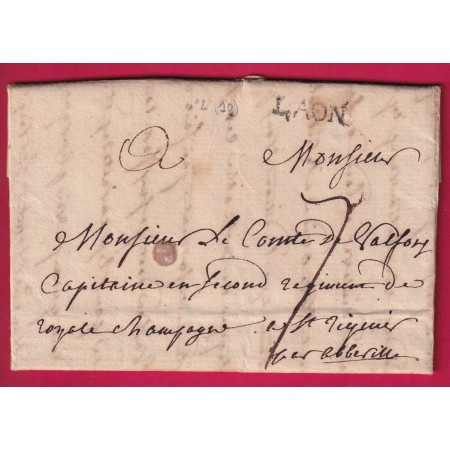 n°2 (20)
LAON
a Monsieur
Monsieur le Comte de Valfons
Capitaine en second regiment de
royale champagne a St riquier
par abbeville
7